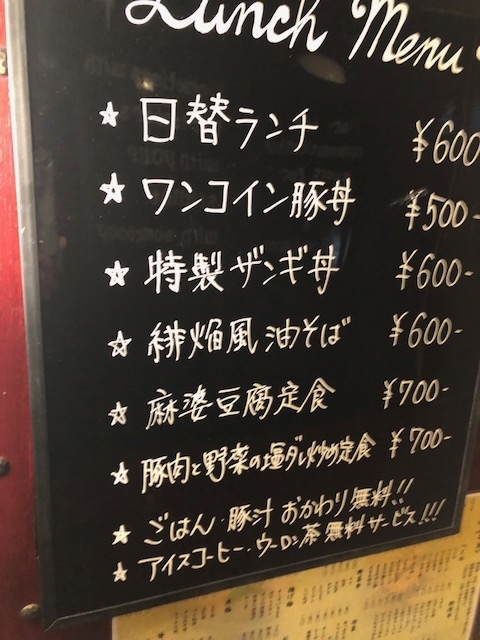 Lunch Menu
☆ 日替ランチ ¥600
☆ ワンコイン豚丼 ¥500-
☆ 特製ザンギ丼 ¥600-
☆ 緋焔風油そば ¥600-
☆ 麻婆豆腐定食 ¥700-
☆ 豚肉と野菜の塩ダレ炒め定食 ¥700-
☆ ごはん・豚汁おかわり無料!!
☆ アイスコーヒー・ウーロン茶無料サービス!!!